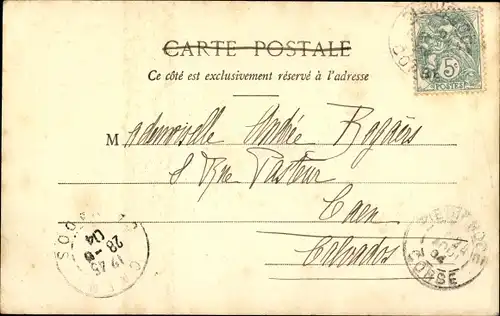 CARTE POSTALE
Ce côté est exclusivement réservé à l'adresse
5c
POSTES
Mademoiselle Andrée Rogaërs
8 Rue Pasteur
Caen
Calvados
CORSE
28 -6 04